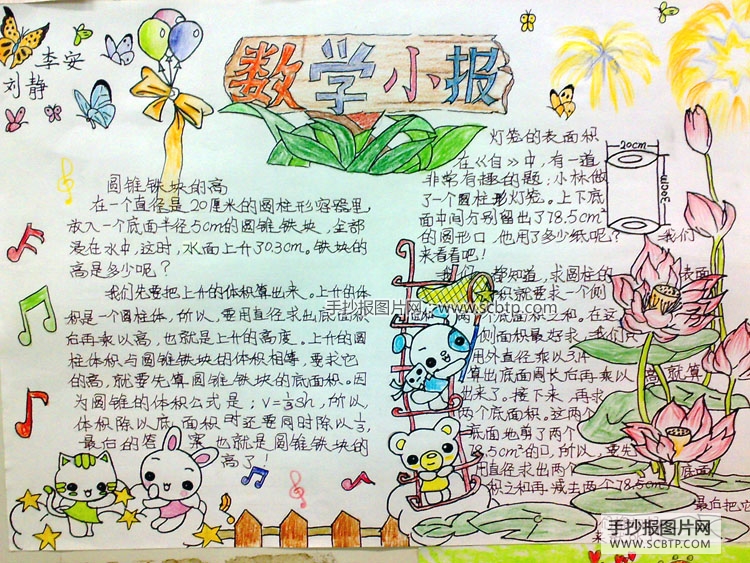 李安
刘静
数学小报
圆锥铁块的高
在一个直径是20厘米的圆柱形容器里
放入一个底面半径5cm的圆锥铁块,全部
浸在水中,这时,水面上升了0.3cm。铁块的
高是多少呢?
我们先要把上升的体积算出来。上升的体
积是一个圆柱体,所以,要用直径求出底面积
后再乘以高,也就是上升的高度。上升的圆
柱体积与圆锥铁块的体积相等,要求它
的高,就要先算圆锥铁块的底面积。因
为圆锥的体积公式是;v=⅓sh,所以
体积除以底面积时还要同时除以⅓,
最后的答案也就是圆锥铁块的
高了!
灯笼的表面积
在《自》中,有一道
非常有趣的题:小林做
了一个圆柱形灯笼。上下底
面中间分别留出了78.5cm²
的圆形口,他用了多少纸呢?我们
来看看吧!
20cm
30cm
我们 都知道,求圆柱的 表面
积就要求一个侧
两个底面积之和。在这
侧面积最好求,我们只
用外直径乘以3.14
算出底面周长后再乘以高就算
出来了。接下来,再求
两个底面积。这两个
底面地剪了两个
78.5cm²的口,所以,要先
用直径求出两个底面
积之和再减去两个78.5cm²
最后把
手抄报图片网 www.scbtp.com
手抄报图片网
WWW.SCBTP.COM